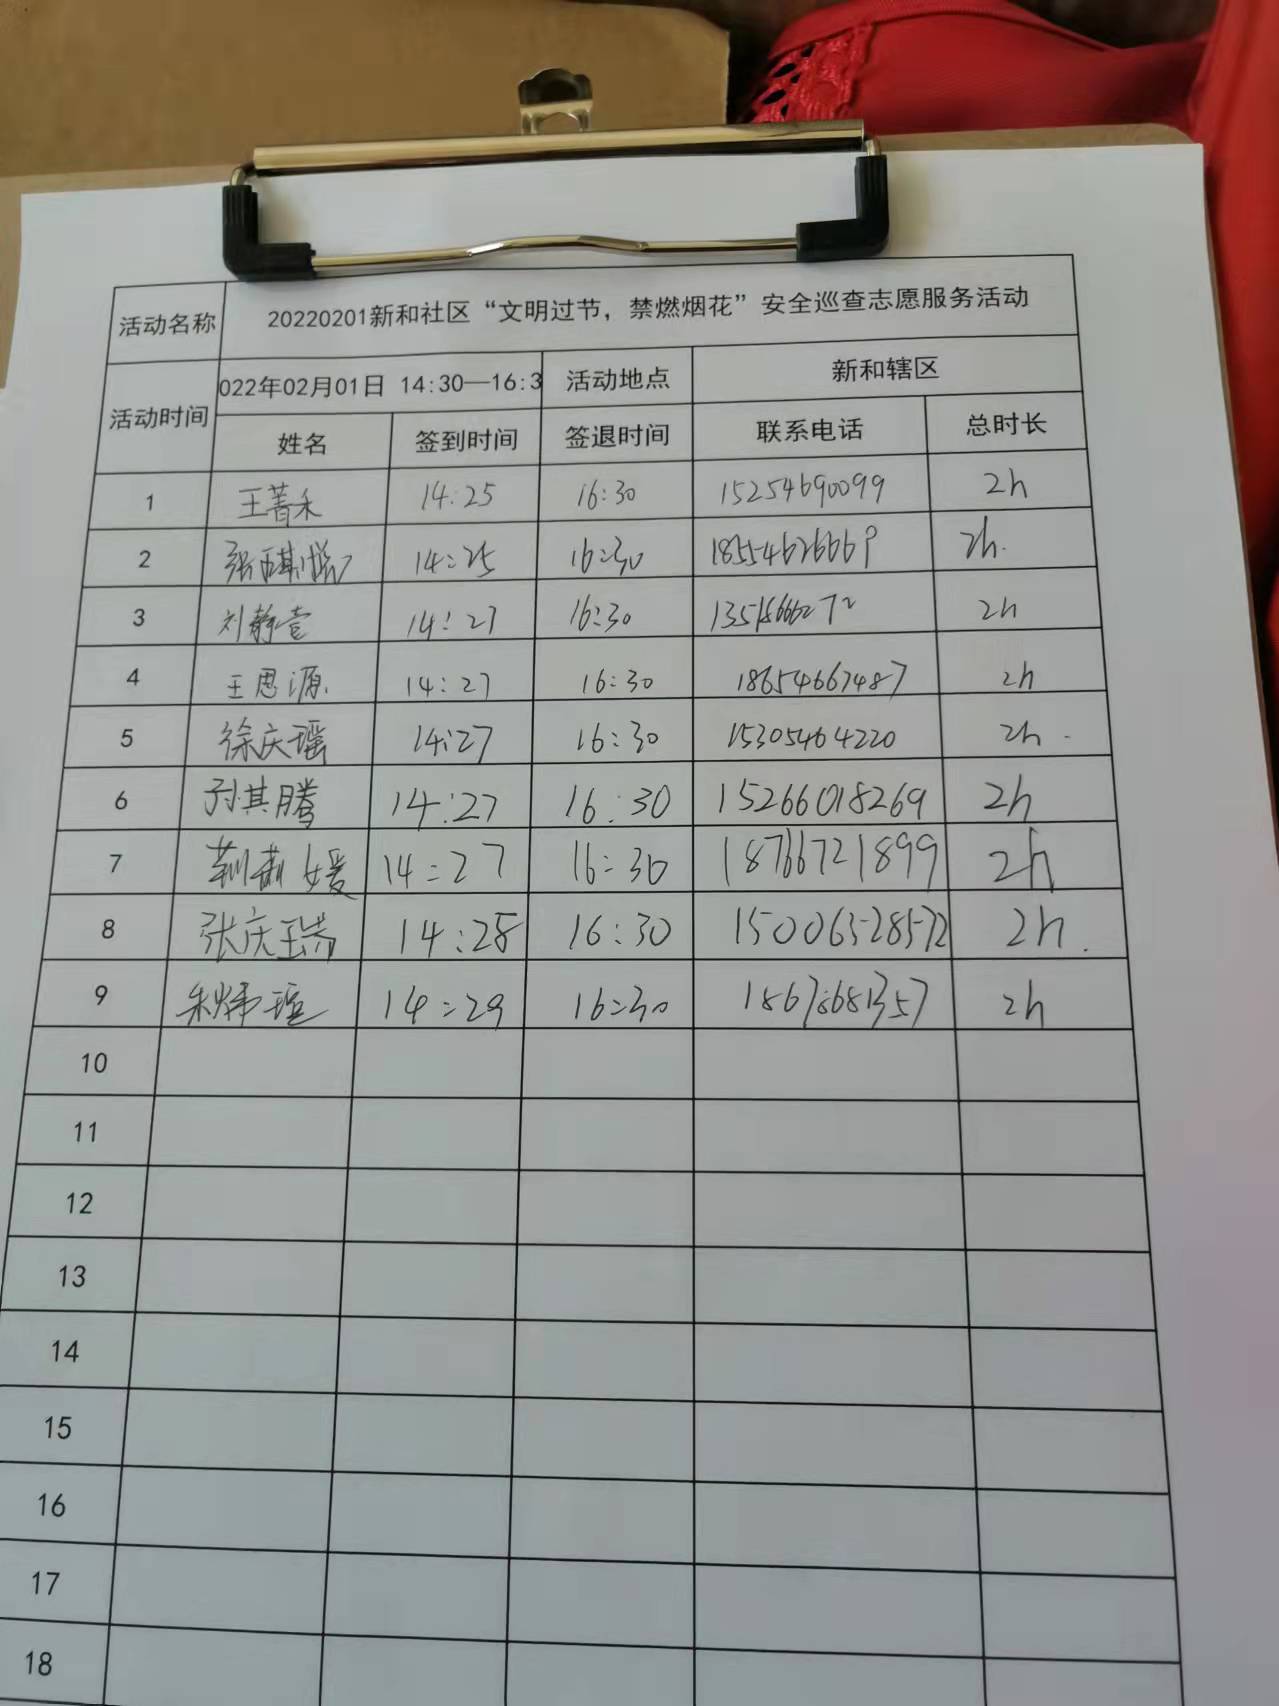 活动名称 20220201新和社区“文明过节，禁燃烟花”安全巡查志愿服务活动
活动时间 022年02月01日 14:30—16:3 活动地点 新和辖区
姓名 签到时间 签退时间 联系电话 总时长
1 王菁禾 14:25 16:30 15254690099 2h
2 14:25 16:30 18554626669 2h.
3 刘静萱 14:27 16:30 13518666272 2h
4 王思源 14:27 16:30 18654667487 2h
5 徐庆瑶 14:27 16:30 15305464220 2h.
6 孙其腾 14:27 16:30 15266018269 2h
7 14:27 16:30 18766721899 2h
8 张庆瑞 14:28 16:30 15006528572 2h.
9 14:29 16:30 2h
10
11
12
13
14
15
16
17
18